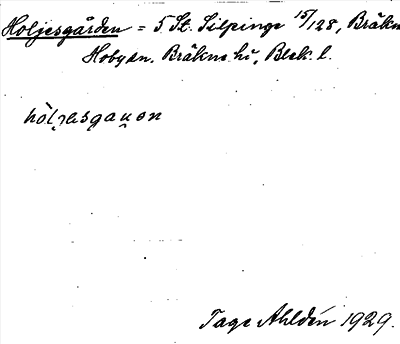 Holjesgården = 5 St. Silpinge 15/128, Bräkne
Hoby sn. Bräkne hd, Blek. l.
Tage Ahldén 1929.